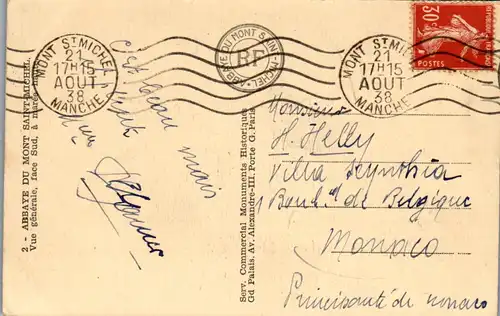 2 - ABBAYE DU MONT SAINT-MICHEL
Vue générale, face Sud, à marée
MONT ST MICHEL
21
17H15
AOUT
38
MANCHE
ABBAYE DU MONT SAINT-MICHEL
RF
MONT ST MICHEL
21
17H15
AOUT
38
MANCHE
30c
POSTES
C'est beau mais
Serv. Commercial Monuments Historiques
Gd Palais. Av. Alexandre-III. Porte G. Paris
Monsieur
H. Helly
Villa Kynthia
Boul. de Belgique
Monaco
Principauté de monaco